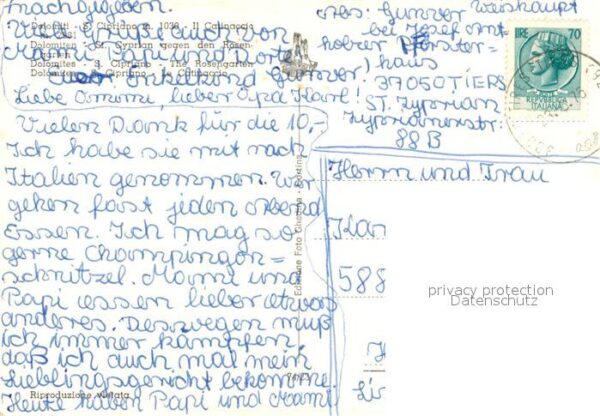 nachgegeben.
Viele Grüße auch von
Mami, Papi, von
Enkelkind Gunver,
Dolomiti - S. Cipriano m. 1030 - Il Catinaccio
Dolomiten - St. Cyprian gegen den Rosen-
Dolomites - S. Cipriano - The Rosengarten
Dolomites - S. Cipriano - Le Catinaccio
Liebe Omomi, lieber Opa Karl!
Vielen Dank für die 10,-
Ich habe sie mit nach
Italien genommen. Wir
gehen fast jeden Abend
Essen. Ich mag so
gerne Champingon=
schnitzel. Mami und
Papi essen lieber etwas
anderes. Deswegen muß
ich immer kämpfen,
daß ich auch mal mein
Lieblingsgericht bekomme.
Heute haben Papi und Mami
Riproduzione vietata
Edizione Foto Ghedina - Cortina
Abs: Gunver Weishaupt
bei Josef
haus
37050 TIERS
ST. Zyprian
Zyprianerstr:
88B
LIRE 70
REPUBBLICA
ITALIANA
Herrn und Frau
Kar
588
privacy protection
Datenschutz